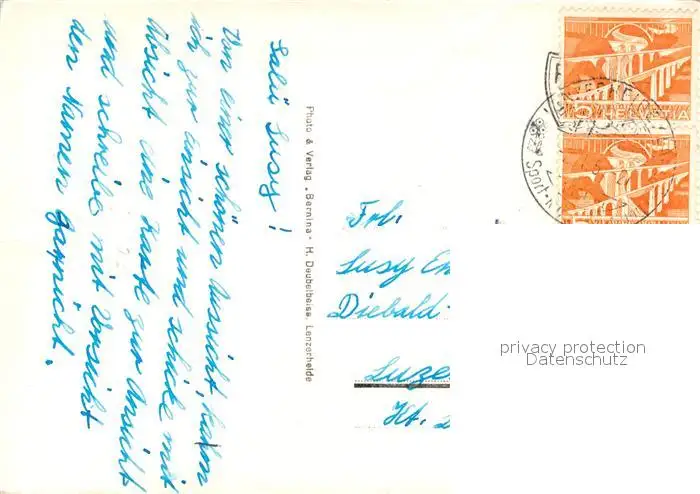 Salü Susy!
Von einer schönen Aussicht, nahm
ich zur Ansicht und schicke mit
Absicht eine Karte zur Ansicht
und schreibe mit Vorsicht
den Namen garnicht.
Photo & Verlag „Bernina" H. Deubelbeiss, Lenzerheide
Frl.
Susy Em
Diebold-
Luze
Kt. L
5 HELVETIA
5
Sport
privacy protection
Datenschutz